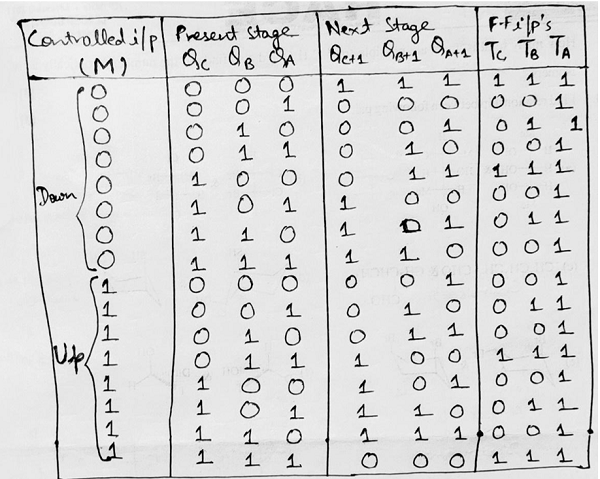 Controlled i/p Present Stage Next Stage F-F i/p's
(M) QC QB QA QC+1 QB+1 QA+1 TC TB TA
0 0 0 0 1 1 1 1 1 1
0 0 0 1 0 0 0 0 0 1
0 0 1 0 0 0 1 0 1 1
0 0 1 1 0 1 0 0 0 1
0 1 0 0 0 1 1 1 1 1
Down 0 1 0 1 1 0 0 0 0 1
0 1 1 0 1 0 1 0 1 1
0 1 1 1 1 1 0 0 0 1
1 0 0 0 0 0 1 0 0 1
1 0 0 1 0 1 0 0 1 1
1 0 1 0 0 1 1 0 0 1
Up 1 0 1 1 1 0 0 1 1 1
1 1 0 0 1 0 1 0 0 1
1 1 0 1 1 1 0 0 1 1
1 1 1 0 1 1 1 0 0 1
1 1 1 1 0 0 0 1 1 1